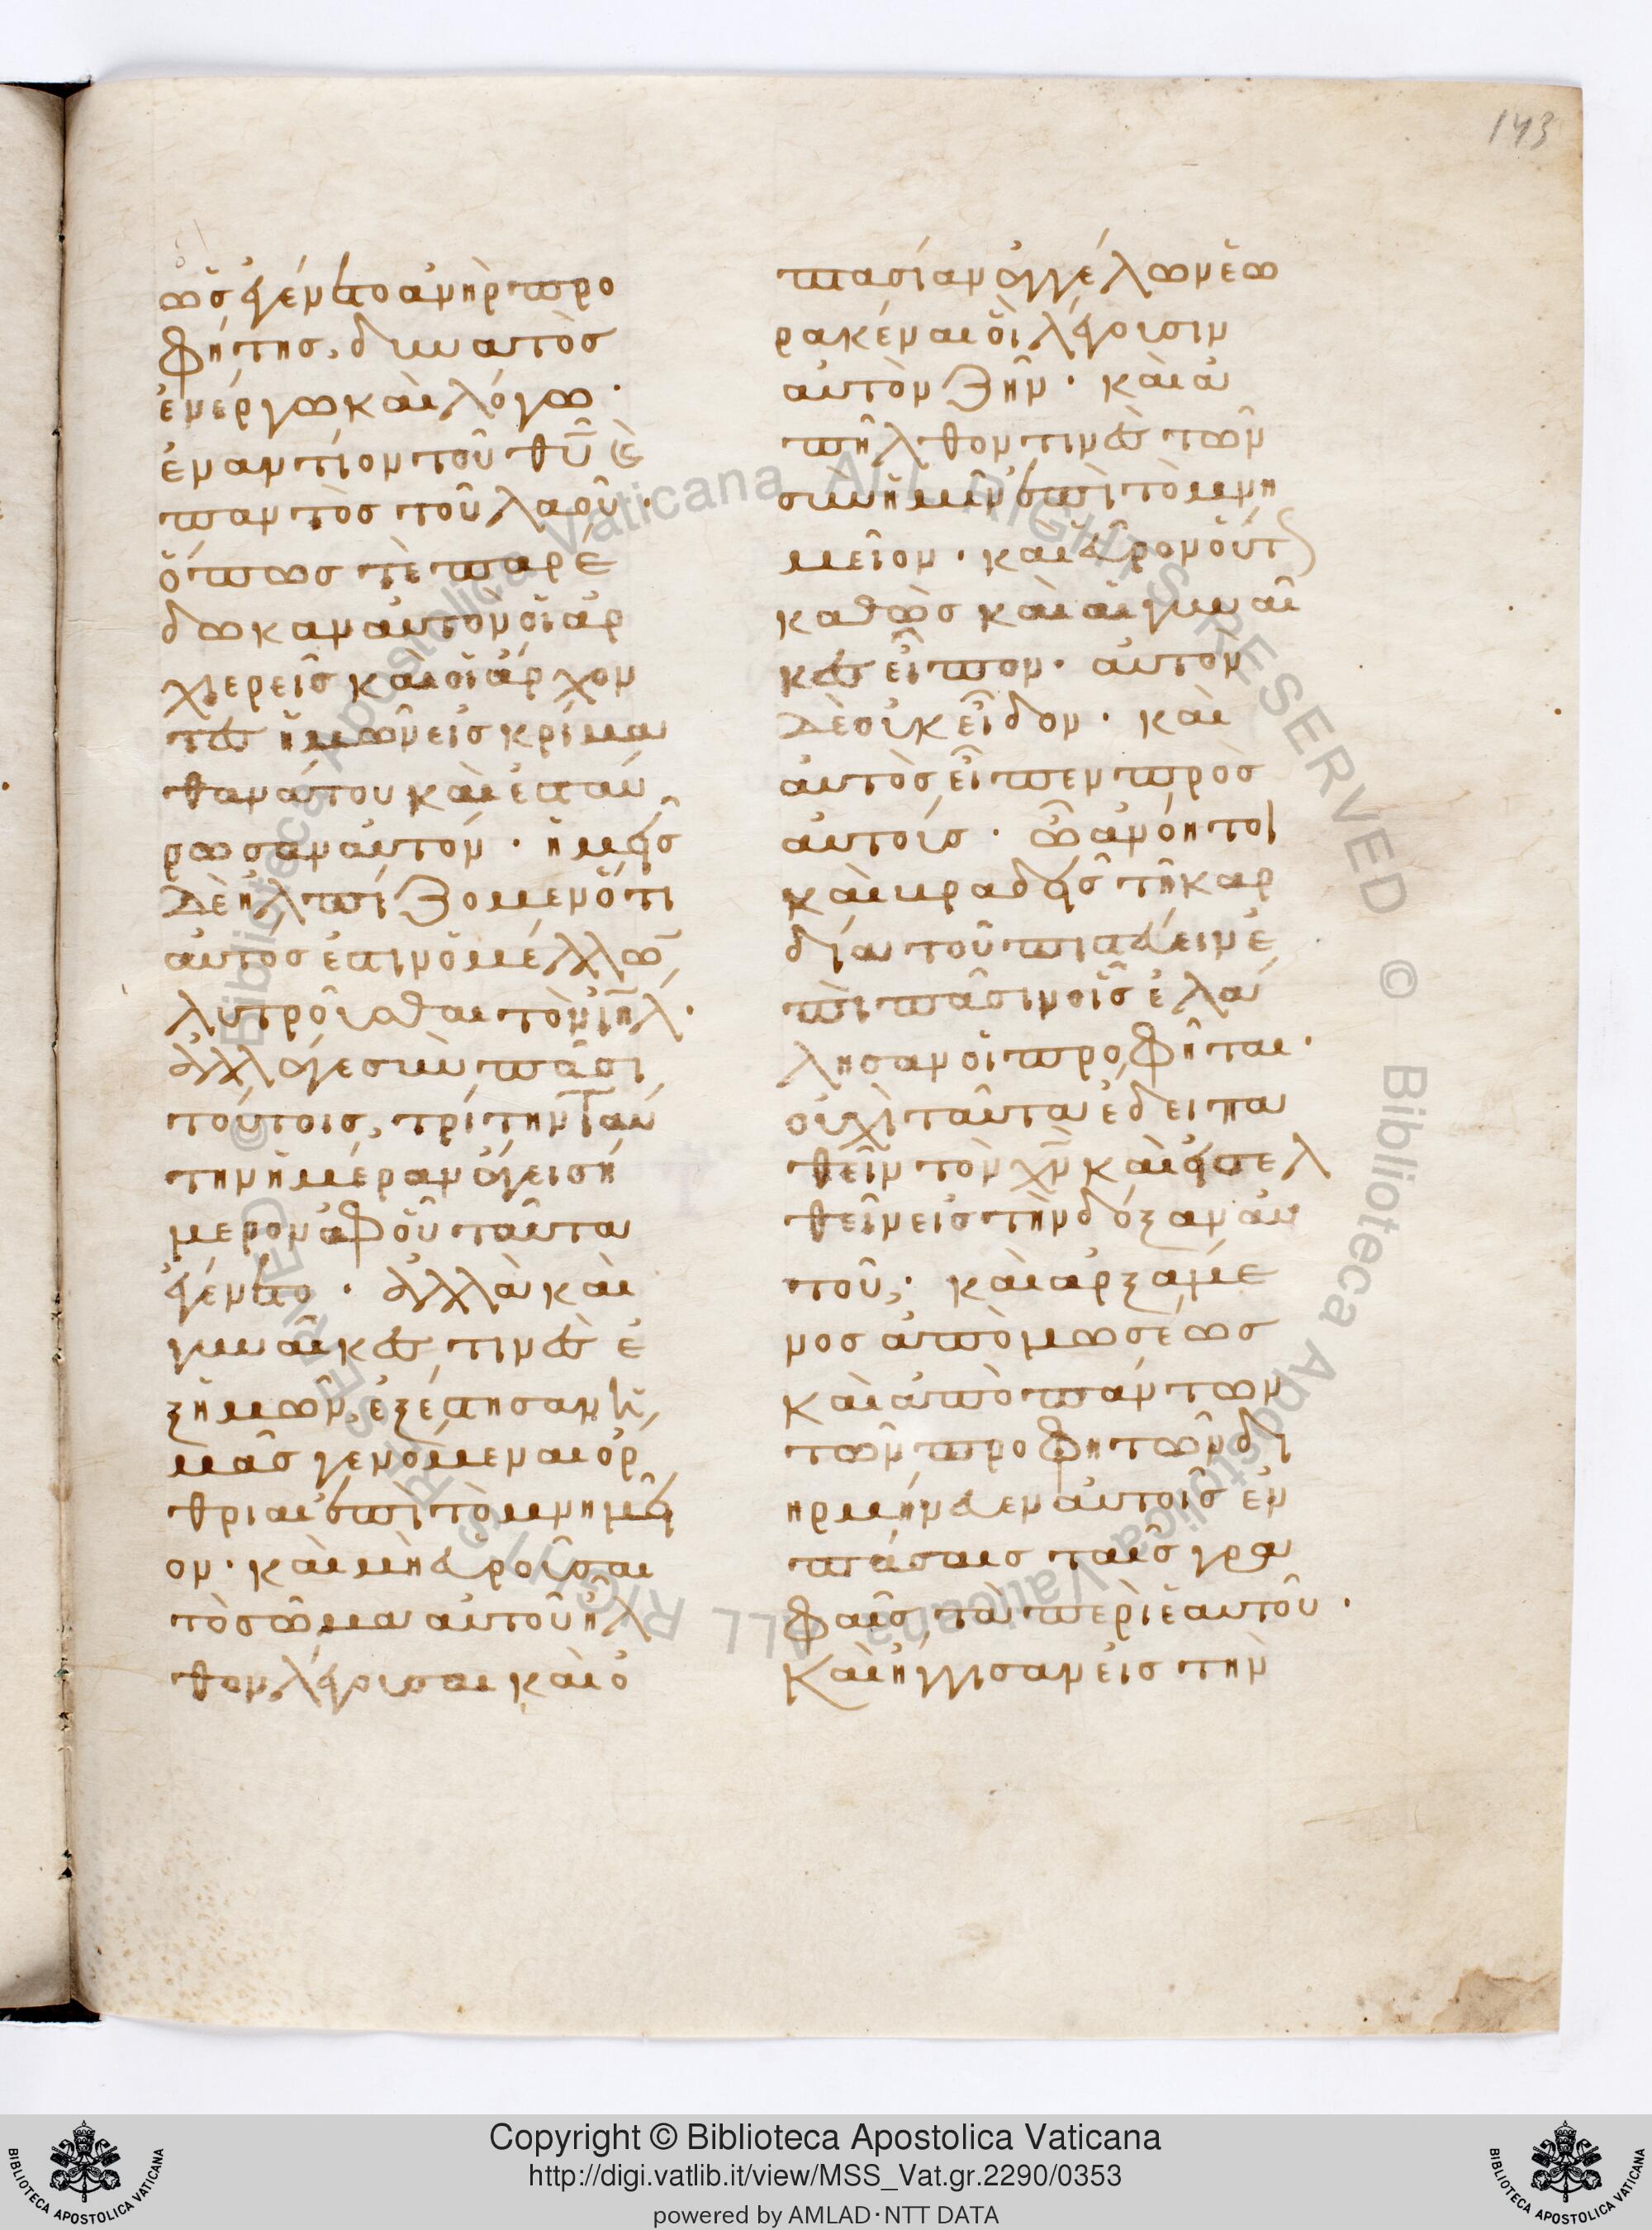 143
ὡς ἐγένετο ἀνὴρ προ
φήτης, δυνατὸς
ἐν ἔργω καὶ λόγω·
ἐναντίον τοῦ θῡ κ(αὶ)
παντὸς τοῦ λαοῦ·
ὅπως τὲ παρέ
δωκαν αὐτὸν οἱ ἀρ
χιερεῖς καὶ οἱ ἄρχον
τες ἡμῶν εἰς κρίμα
θανάτου καὶ ἐσταύ
ρωσαν αὐτόν· ἡμεῖς
δὲ ἠλπίζομεν ὅτι
αὐτός ἐστιν ὁ μέλλω̅
λυτροῦσθαι τὸν ιη̅λ·
ἀλλάγε σὺν πᾶσι
τούτοις, τρίτην ταύ
την ἡμέραν ἄγει σή
μερον ἀφ' οὗ ταῦτα
ἐγένετο· ἀλλὰ καὶ
γυναῖκες τινὲς ἐ
ξἡμῶν, ἐξέστησαν ἡ
μᾶς γενόμεναι ὄρ
θριαι ἐπὶ τὸ μνημεῖ
ον· καὶ μὴ εὑροῦσαι
τὸ σῶμα αὐτοῦ ἦλ
θον λέγουσαι καὶ ὀ
πτασίαν ἀγγέλων ἑω
ρακέναι οἳ λέγουσιν
αὐτὸν ζῆν· καὶ ἀ
πῆλθον τινὲς τῶν
σὺν ἡμῖν ἐπὶ τὸ μνη
μεῖον· καὶ εὗρον οὕτ(ως)
καθὼς καὶ αἱ γυναῖ
κες εἶπον· αὐτὸν
δὲ οὐκ εἶδον· καὶ
αὐτὸς εἶπεν πρὸς
αὐτούς· ὦ ἀνόητοι
καὶ βραδεῖς τῆ καρ
δία τοῦ πιστεύειν ἐ
πὶ πᾶσιν οἷς ἐλά
λησαν οἱ προφῆται·
οὐχὶ ταῦτα ἔδει πα
θεῖν τὸν χν̅ καὶ εἰσελ
θεῖν εἰς τὴν δόξαν αὐ
τοῦ; καὶ ἀρξάμε
νος ἀπὸ μωσέως
καὶ ἀπὸ πάντων
τῶν προφητῶν δι
ηρμήνευεν αὐτοῖς ἐν
πάσαις ταῖς γρα
φαῖς τὰ περὶ ἑαυτοῦ·
Καὶ ἤγγισαν εἰς τὴν
Copyright © Biblioteca Apostolica Vaticana
http://digi.vatlib.it/view/MSS_Vat.gr.2290/0353
powered by AMLAD·NTT DATA
BIBLIOTECA APOSTOLICA VATICANA
BIBLIOTECA APOSTOLICA VATICANA
© Biblioteca Apostolica Vaticana ALL RIGHTS RESERVED © Biblioteca Apostolica Vaticana ALL RIGHTS RESERVED